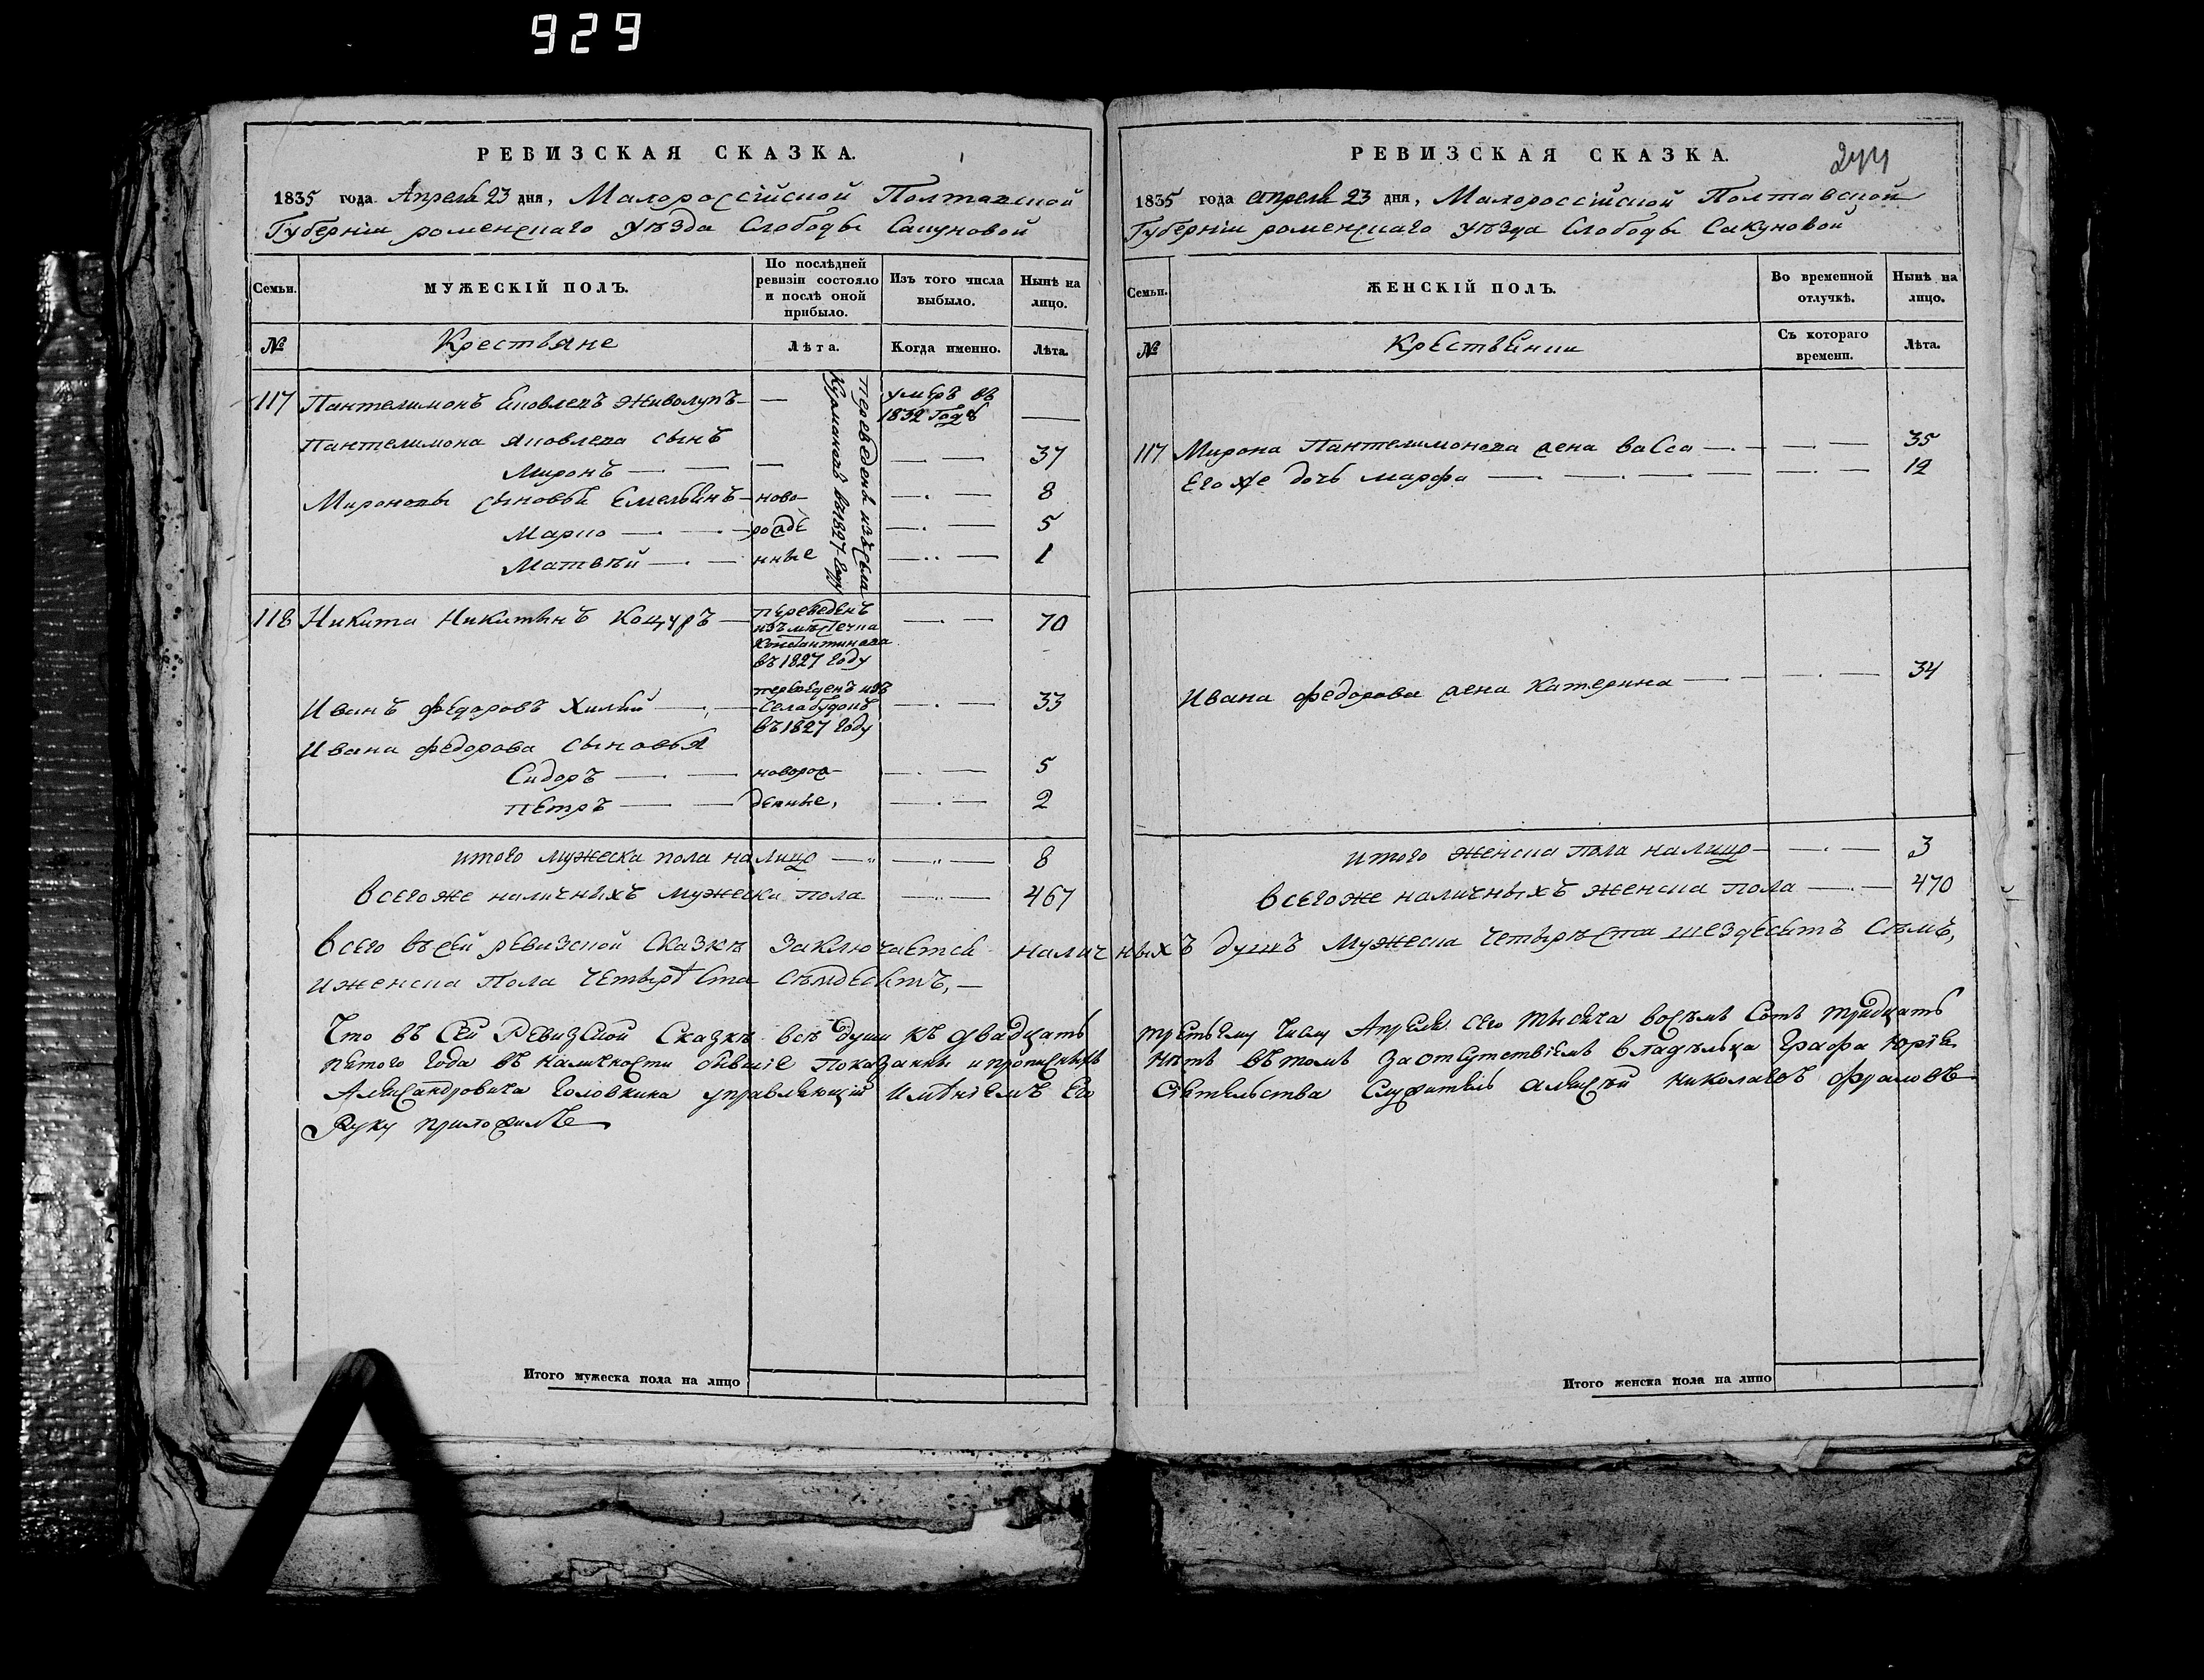 929
РЕВИЗСКАЯ СКАЗКА.
1835 года Апреля 23 дня, Малороссійской Полтавской
Губерніи роменскаго уѣзда Слободы Сакуновой
Семьи.
МУЖЕСКІЙ ПОЛЪ.
По послѣдней
ревизіи состояло
и послѣ оной
прибыло.
Изъ того числа
выбыло.
Нынѣ на
лицо.
№
Крестьяне
Лѣта.
Когда именно.
Лѣта.
117 Пантелимонъ Яковлевъ Живолупъ — — умѣръ въ
1832 Годѣ —
Пантелимона яковлева сынъ
Миронъ — — — — 37
Мироновы сыновья Емельянъ — ново- — 8
Марко — — рожде — 5
Матвѣй — — нные — 1
переведенъ изъ села
въ 1827 году
118 Никита Никитинъ Коцуръ — переведенъ
изъ мѣстечка
Константинова
въ 1827 году
— 70
Иванъ федоровъ Хилъй — переведенъ изъ
Села будокъ
въ 1827 году
— 33
Ивана федорова сыновья
Сидоръ — — новорож- — 5
петръ — — денные, — 2
итого мужеска пола на лицо — — 8
всего же наличныхъ мужеска пола — 467
РЕВИЗСКАЯ СКАЗКА.
244
1835 года апреля 23 дня, Малороссійской Полтавской
Губерніи роменскаго уѣзда Слободы Сакуновой
Семьи.
ЖЕНСКІЙ ПОЛЪ.
Во временной
отлучкѣ.
Нынѣ на
лицо.
№
Крестьянки
Съ котораго
времени.
Лѣта.
117 Мирона Пантелимонова жена васса — — 35
Его же дочь марфа — — 12
Ивана федорова жена Катерина — — 34
итого женска пола на лицо — — 3
всего же наличныхъ женска пола — 470
всего въ сей ревизской Сказкѣ заключается наличныхъ душъ мужеска четырѣста шездесятъ сѣмъ,
и женска пола четырѣста сѣмдесятъ, —
Что въ Сей Ревизской Сказкѣ всѣ души къ двадцать третьему числу Апреля сего тысяча восѣмъ Сотъ тридцать
пятого года въ наличности бывшіе показанны и прописныхъ нѣтъ въ томъ за отсутствіемъ владѣльца Графа Юрія
Александровича Головкина управляющій имѣніемъ Его Сіятельства Служитель алексѣй николаевъ фроловъ
Руку приложилъ
Итого мужеска пола на лицо
Итого женска пола на лицо